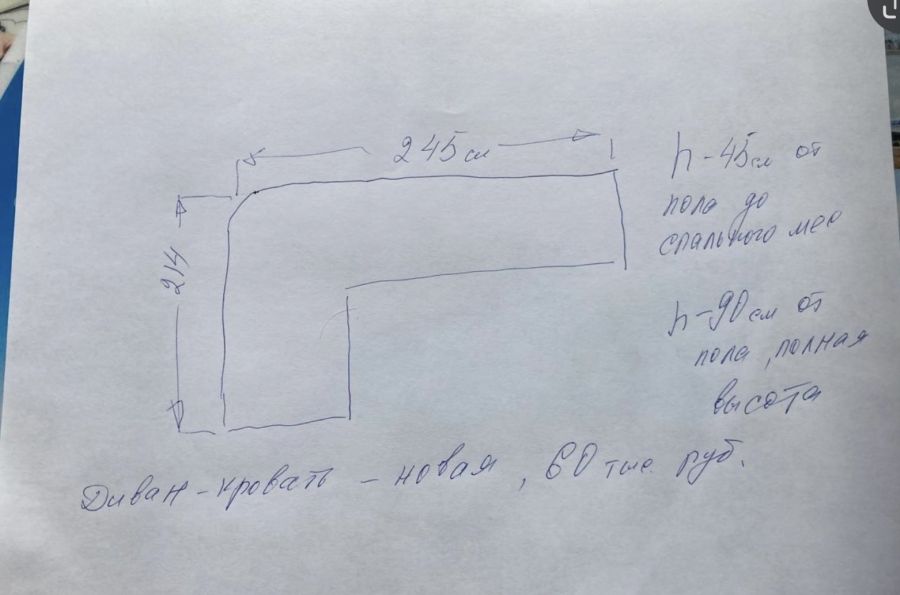 245см
214
h-45см от
пола до
спального мес
h-90см от
пола, полная
высота
Диван-кровать - новая, 60 тыс. руб.